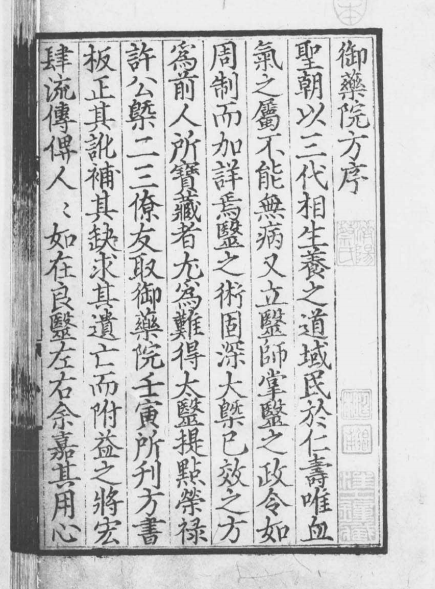 御藥院方序
聖朝以三代相生養之道域民於仁壽唯血
氣之屬不能無病又立毉師掌毉之政令如
周制而加詳焉毉之術固深大槩已效之方
為前人所寶藏者尤為難得太毉提點榮祿
許公槩二三僚友取御藥院壬寅所刊方書
板正其訛補其缺求其遺亡而附益之將宏
肆流傳俾人〻如在良毉左右余嘉其用心